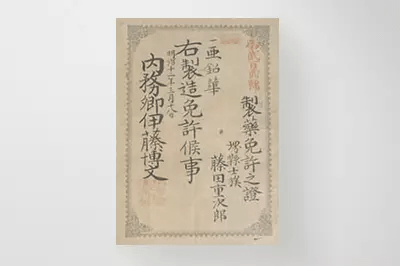 製藥免許之證
堺縣士族
藤田重次郎
一亜鉛華
右製造免許候事
明治十二年三月十八日
内務卿伊藤博文